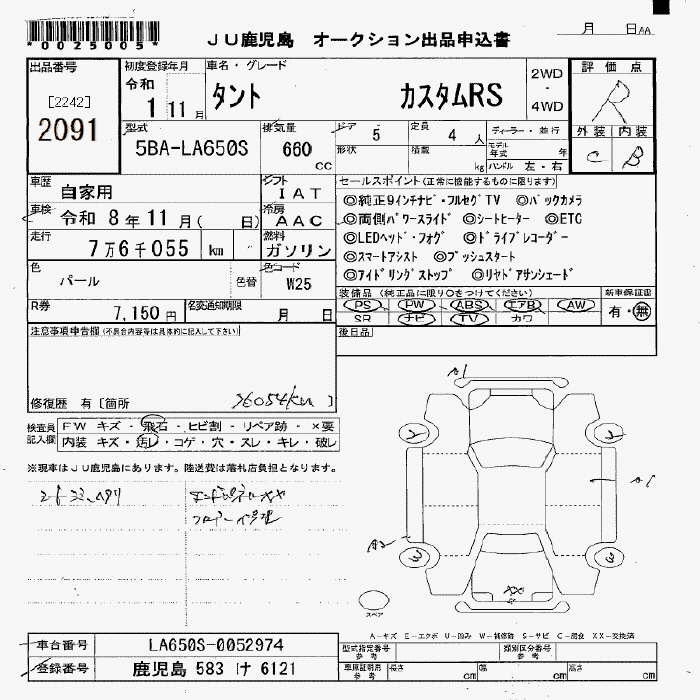 *0025005*
JU鹿児島 オークション出品申込書
月 日 AA
出品番号
[2242]
2091
初度登録年月
令和
1 11 月
車名・グレード
タント カスタムRS
2WD
・
4WD
評価点
R
外装 内装
C B
型式
5BA-LA650S
排気量
660
cc
ドア
5
定員
4 人
形状
積載
kg
ディーラー・並行
モデル年式 年
ハンドル 左・右
車歴
自家用
シフト
IAT
車検
令和 8年11月( 日)
冷房
AAC
走行
7万6千055 km
燃料
ガソリン
色
パール
色替
色コード
W25
R券
7,150 円
名変通知期限
月 日
セールスポイント(正常に機能するものに限ります)
◎純正9インチナビ・フルセグTV ◎バックカメラ
◎両側パワースライド ◎シートヒーター ◎ETC
◎LEDヘッド・フォグ ◎ドライブレコーダー
◎スマートアシスト ◎プッシュスタート
◎アイドリングストップ ◎リヤドアサンシェード
装備品 (純正品に限り○をつけてください)
PS PW ABS エアB AW
SR ナビ TV カワ
新車保証書
有・無
後日品
注意事項申告欄(不具合内容等は具体的に記入して下さい)
修復歴 有[箇所 ]
76054km
検査員記入欄
FW キズ・飛石・ヒビ割・リペア跡・×要
内装 キズ・汚レ・コゲ・穴・スレ・キレ・破レ
※現車はJU鹿児島にあります。陸送費は落札店負担となります。
A1
A1
A2
XX
スペア
A-キズ E-エクボ U-凹み W-補修跡 S-サビ C-腐食 XX-交換済
車台番号
LA650S-0052974
登録番号
鹿児島 583 け 6121
型式指定番号
参考
類別区分番号
参考
車庫証明用
参考
長さ cm
幅 cm
高さ cm